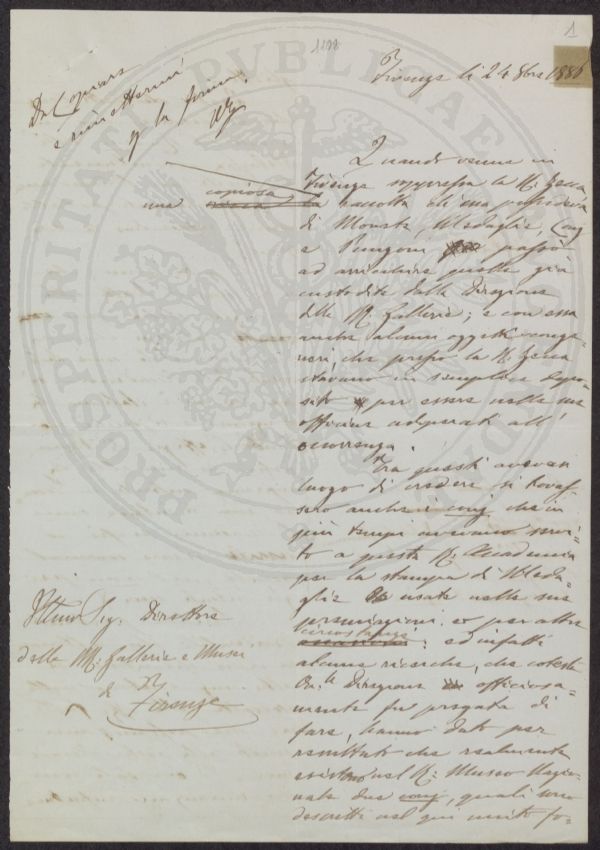 1
1188
Firenze li 24 8bre 1886
Da Copiare
e rimettermi
la firma
Quando venne in
Firenze soppressa la R. Zecca
una copiosa raccolta che essa possedeva
di Monete, Medaglie, Conj
e Punzoni passò
ad arricchire quelle già
custodite dalla Direzione
delle R. Gallerie; e con essa
anche alcuni oggetti conge-
neri, che presso la R. Zecca
stavano in semplice depo-
sito per essere nelle sue
officine adoperati all'
occorrenza.
Tra questi avevasi
luogo di credere si trovas-
sero anche i conj che in
più tempi avevano servi-
to a questa R. Accademia
per la stampa di Meda-
glie usate nelle sue
premiazioni, o per altre
circostanze: ed infatti
alcune ricerche, che cotesta
On.le Direzione officiosa-
mente fu pregata di
fare, hanno dato per
resultato che realmente
esistono nel R. Museo Nazio-
nale due conj, quali sono
descritti nel qui unito fo-
Illmo Sig. Direttore
delle R. Gallerie e Musei
di
Firenze
PROSPERITATI PUBLICAE